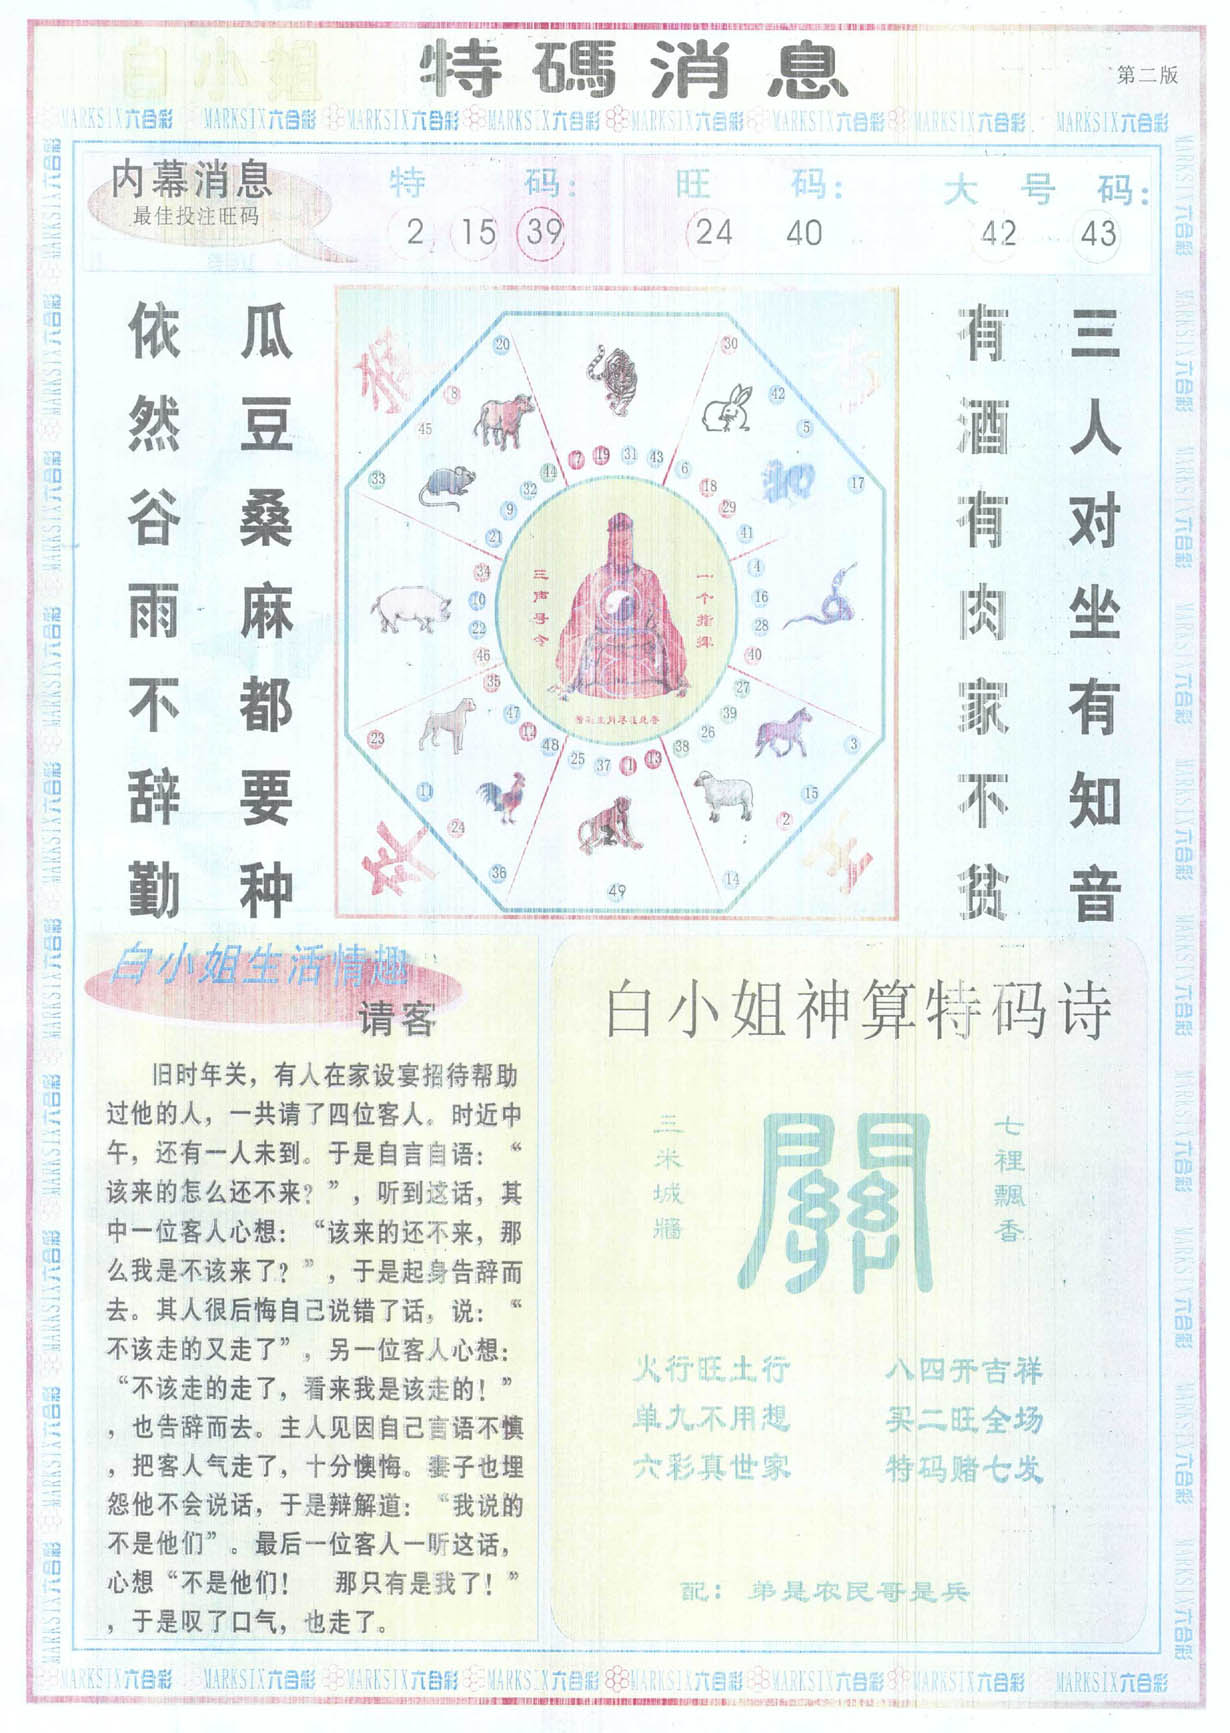 白小姐
特碼消息
第二版
MARKSIX六合彩 MARKSIX六合彩 MARKSIX六合彩 MARKSIX六合彩 MARKSIX六合彩 MARKSIX六合彩 MARKSIX六合彩 MARKSIX六合彩
内幕消息
最佳投注旺码
特 码：
2 15 39
旺 码：
24 40
大 号 码：
42 43
三人对坐有知音
有酒有肉家不贫
瓜豆桑麻都要种
依然谷雨不辞勤
20
30
8
42
45
5
33
17
7 19 31 43
44
6
32
18
9
29
21
41
34
4
10
16
22
28
46
40
35
27
47
39
26
48
38
25 37 1 13
一个指挥
三声号令
23
3
11
15
24
2
36
14
49
白小姐生活情趣
请客
旧时年关，有人在家设宴招待帮助
过他的人，一共请了四位客人。时近中
午，还有一人未到。于是自言自语：“
该来的怎么还不来？”，听到这话，其
中一位客人心想：“该来的还不来，那
么我是不该来了？”，于是起身告辞而
去。其人很后悔自己说错了话，说：“
不该走的又走了”，另一位客人心想：
“不该走的走了，看来我是该走的！”
，也告辞而去。主人见因自己言语不慎
，把客人气走了，十分懊悔。妻子也埋
怨他不会说话，于是辩解道：“我说的
不是他们”。最后一位客人一听这话，
心想“不是他们！ 那只有是我了！”
，于是叹了口气，也走了。
白小姐神算特码诗
七裡飄香
關
三米城牆
火行旺土行 八四开吉祥
单九不用想 买二旺全场
六彩真世家 特码赌七发
配：弟是农民哥是兵
MARKSIX六合彩 MARKSIX六合彩 MARKSIX六合彩 MARKSIX六合彩 MARKSIX六合彩 MARKSIX六合彩 MARKSIX六合彩 MARKSIX六合彩